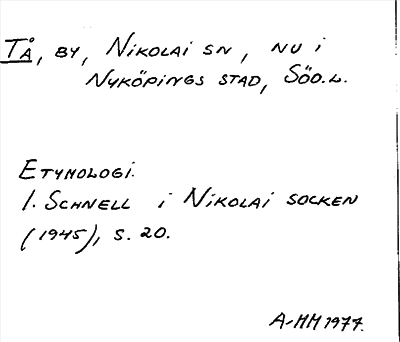 Tå, by, Nikolai sn, nu i
Nyköpings stad, Söd.l.
Etymologi.
I. Schnell i Nikolai socken
(1945), s. 20.
A-MM 1977.